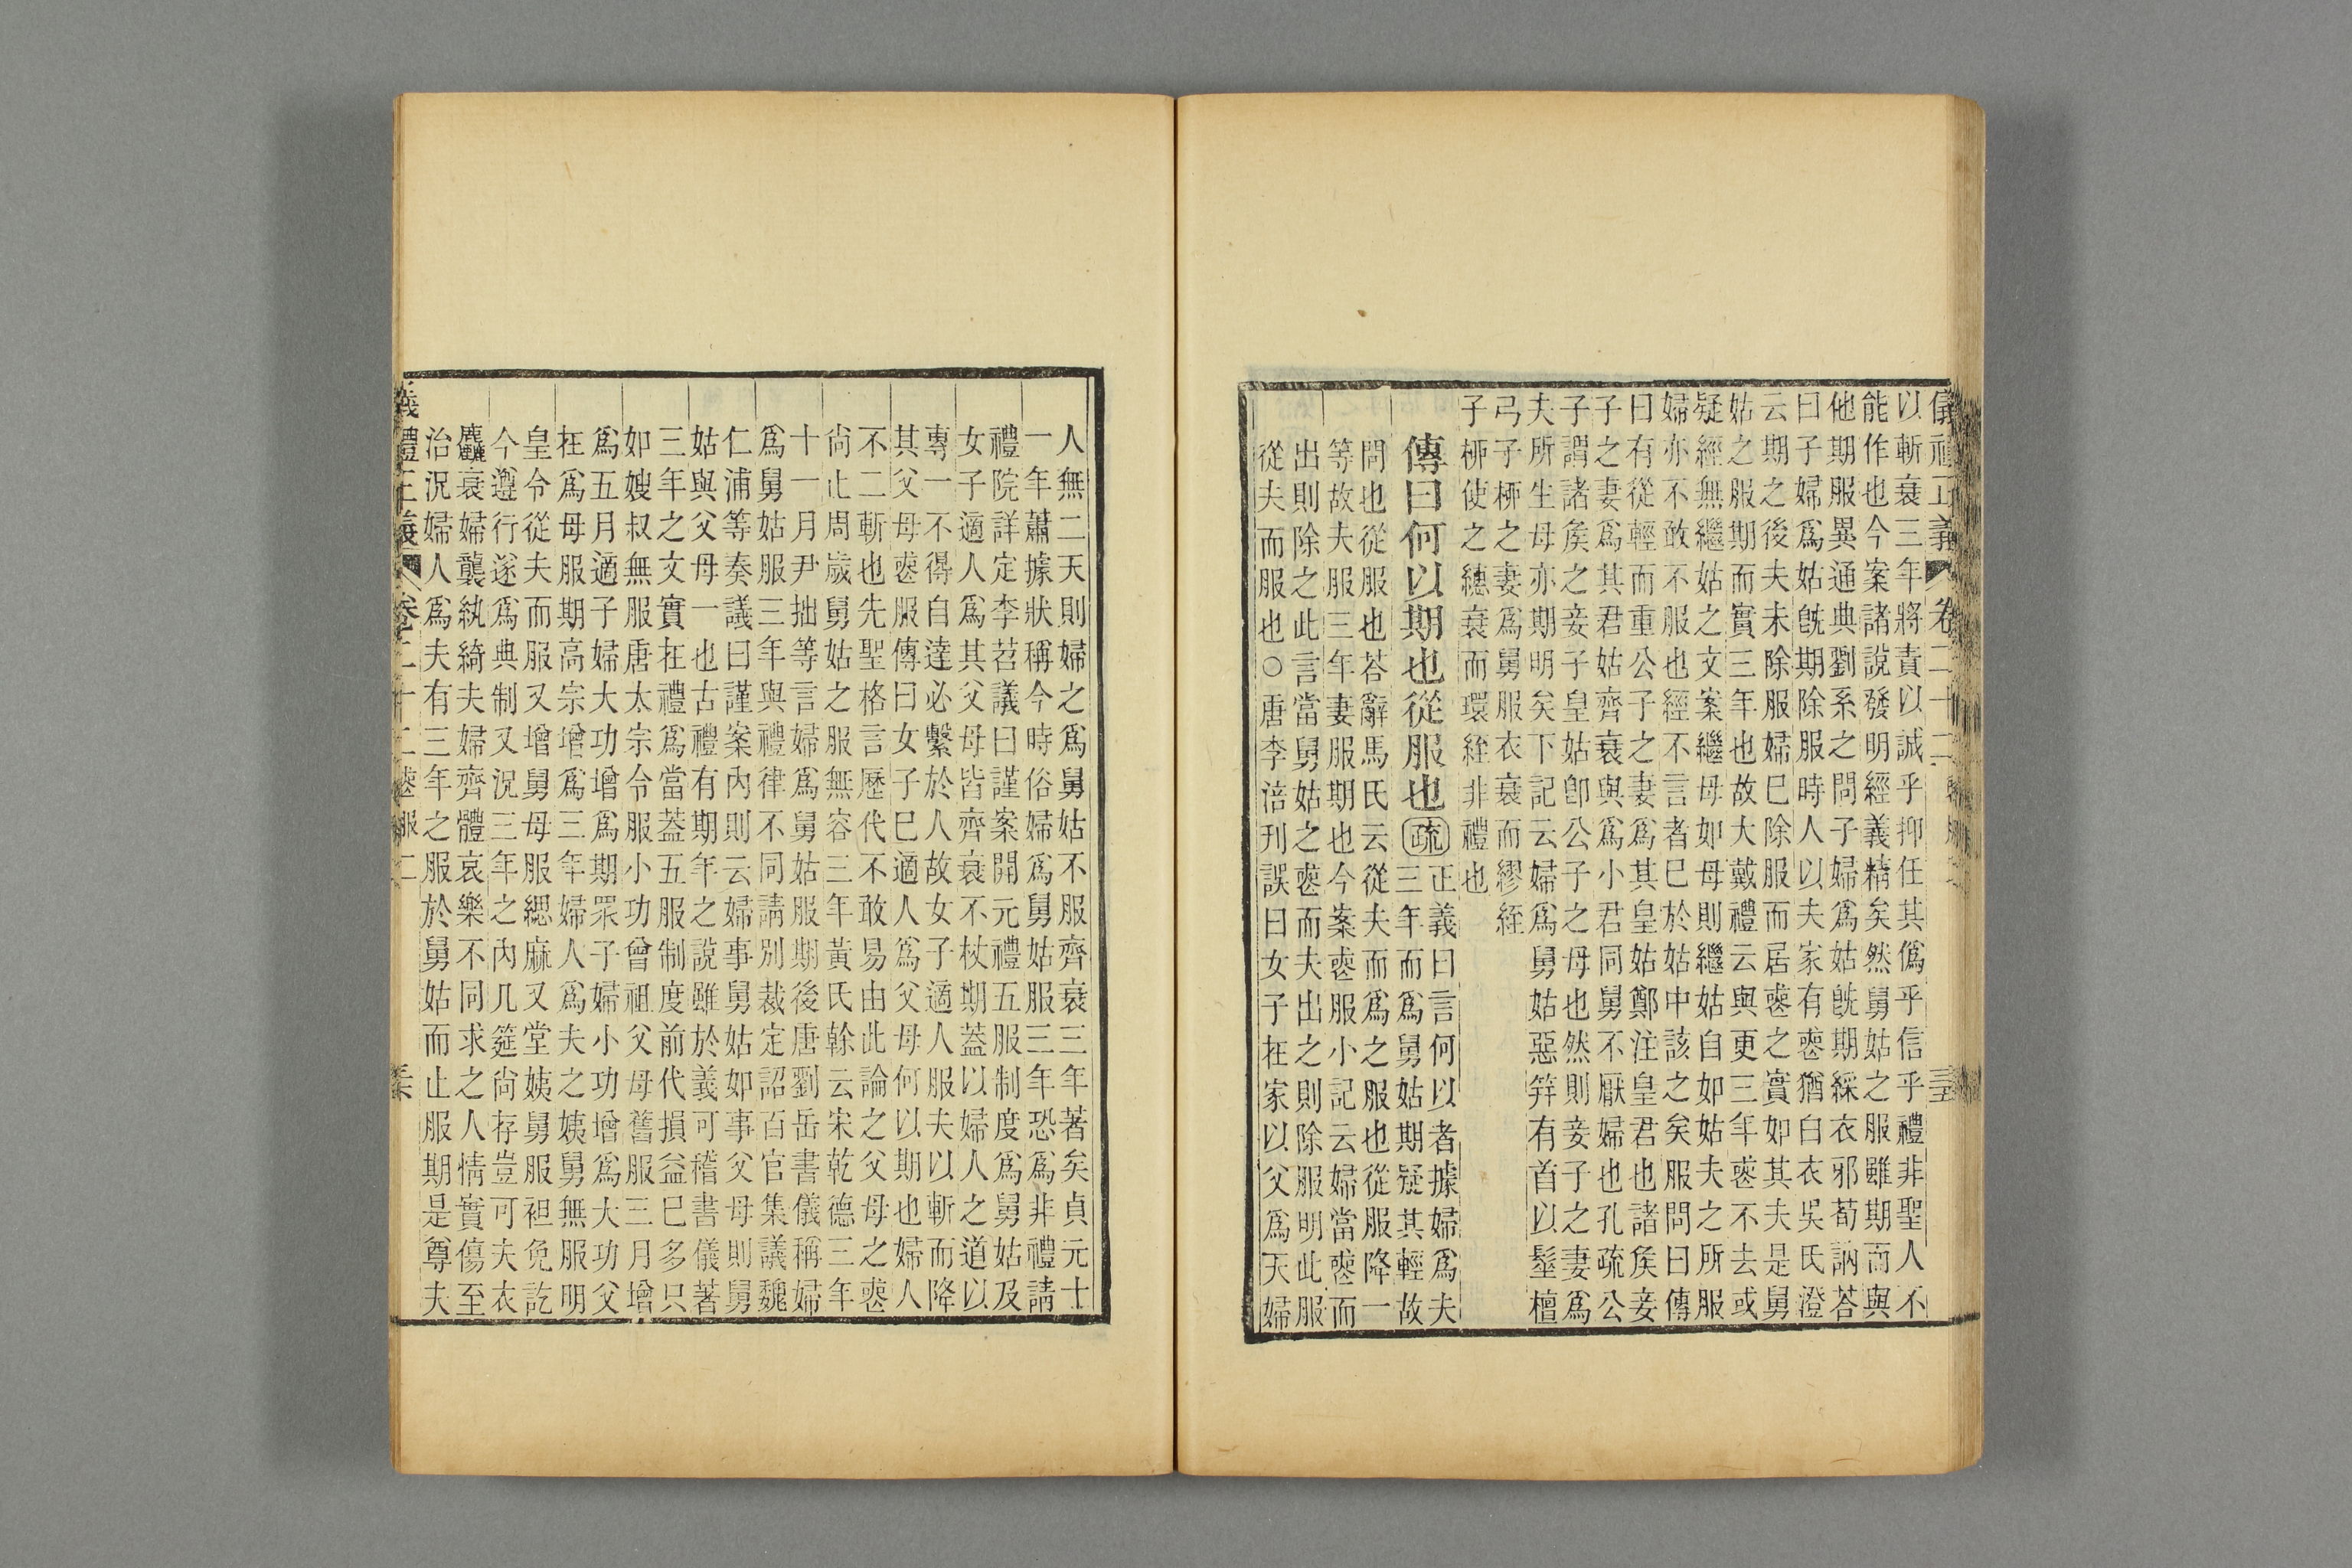 儀禮正義 卷二十二 喪服二 三
以斬衰三年將責以誠乎抑任其僞乎信乎禮非聖人不
能作也今案諸說發明經義精矣然舅姑之服雖期而與
他期服異通典劉系之問子婦爲姑旣期綵衣邪荀訥荅
曰子婦爲姑旣期除服時人以夫家有喪猶白衣吳氏澄
云期之後夫未除服婦巳除服而居喪之實如其夫是舅
姑之服期而實三年也故大戴禮云與更三年喪不去或
疑經無繼姑之文案繼母如母則繼姑自如姑夫之所服
婦亦不敢不服也經不言者巳於姑中該之矣服問曰傳
曰有從輕而重公子之妻爲其皇姑鄭注皇君也諸矦妾
子之妻爲其君姑齊衰與爲小君同舅不厭婦也孔疏公
子謂諸矦之妾子皇姑卽公子之母也然則妾子之妻爲
夫所生母亦期明矣下記云婦爲舅姑惡笄有首以髽檀
弓子桺之妻爲舅服衣衰而繆絰
子桺使之繐衰而環絰非禮也
傳曰何以期也從服也 疏 正義曰言何以者據婦爲夫
三年而爲舅姑期疑其輕故
問也從服也荅辭馬氏云從夫而爲之服也從服降一
等故夫服三年妻服期也今案喪服小記云婦當喪而
出則除之此言當舅姑之喪而夫出之則除服明此服
從夫而服也○唐李涪刊誤曰女子在家以父爲天婦
人無二天則婦之爲舅姑不服齊衰三年著矣貞元十
一年蕭據狀稱今時俗婦爲舅姑服三年恐爲非禮請
禮院詳定李苕議曰謹案開元禮五服制度爲舅姑及
女子適人爲其父母皆齊衰不杖期蓋以婦人之道以
專一不得自達必繫於人故女子適人服夫以斬而降
其父母喪服傳曰女子巳適人爲父母何以期也婦人
不二斬也先聖格言歷代不敢易由此論之父母之喪
尚止周歲舅姑之服無容三年黃氏榦云宋乾德三年
十一月尹拙等言婦爲舅姑服期後唐劉岳書儀稱婦
爲舅姑服三年與禮律不同請別裁定詔百官集議魏
仁浦等奏議曰謹案內則云婦事舅姑如事父母則舅
姑與父母一也古禮有期年之說雖於義可稽書儀著
三年之文實在禮爲當蓋五服制度前代損益巳多只
如嫂叔無服唐太宗令服小功曾祖父母舊服三月增
爲五月適子婦大功增爲期眾子婦小功增爲大功父
在爲母服期高宗增爲三年婦人爲夫之姨舅無服明
皇令從夫而服又增舅母服緦麻又堂姨舅服袒免訖
今遵行遂爲典制又況三年之內几筵尙存豈可夫衣
麤衰婦襲紈綺夫婦齊體哀樂不同求之人情實傷至
治況婦人爲夫有三年之服於舅姑而止服期是尊夫
儀禮正義 卷二十二 喪服二